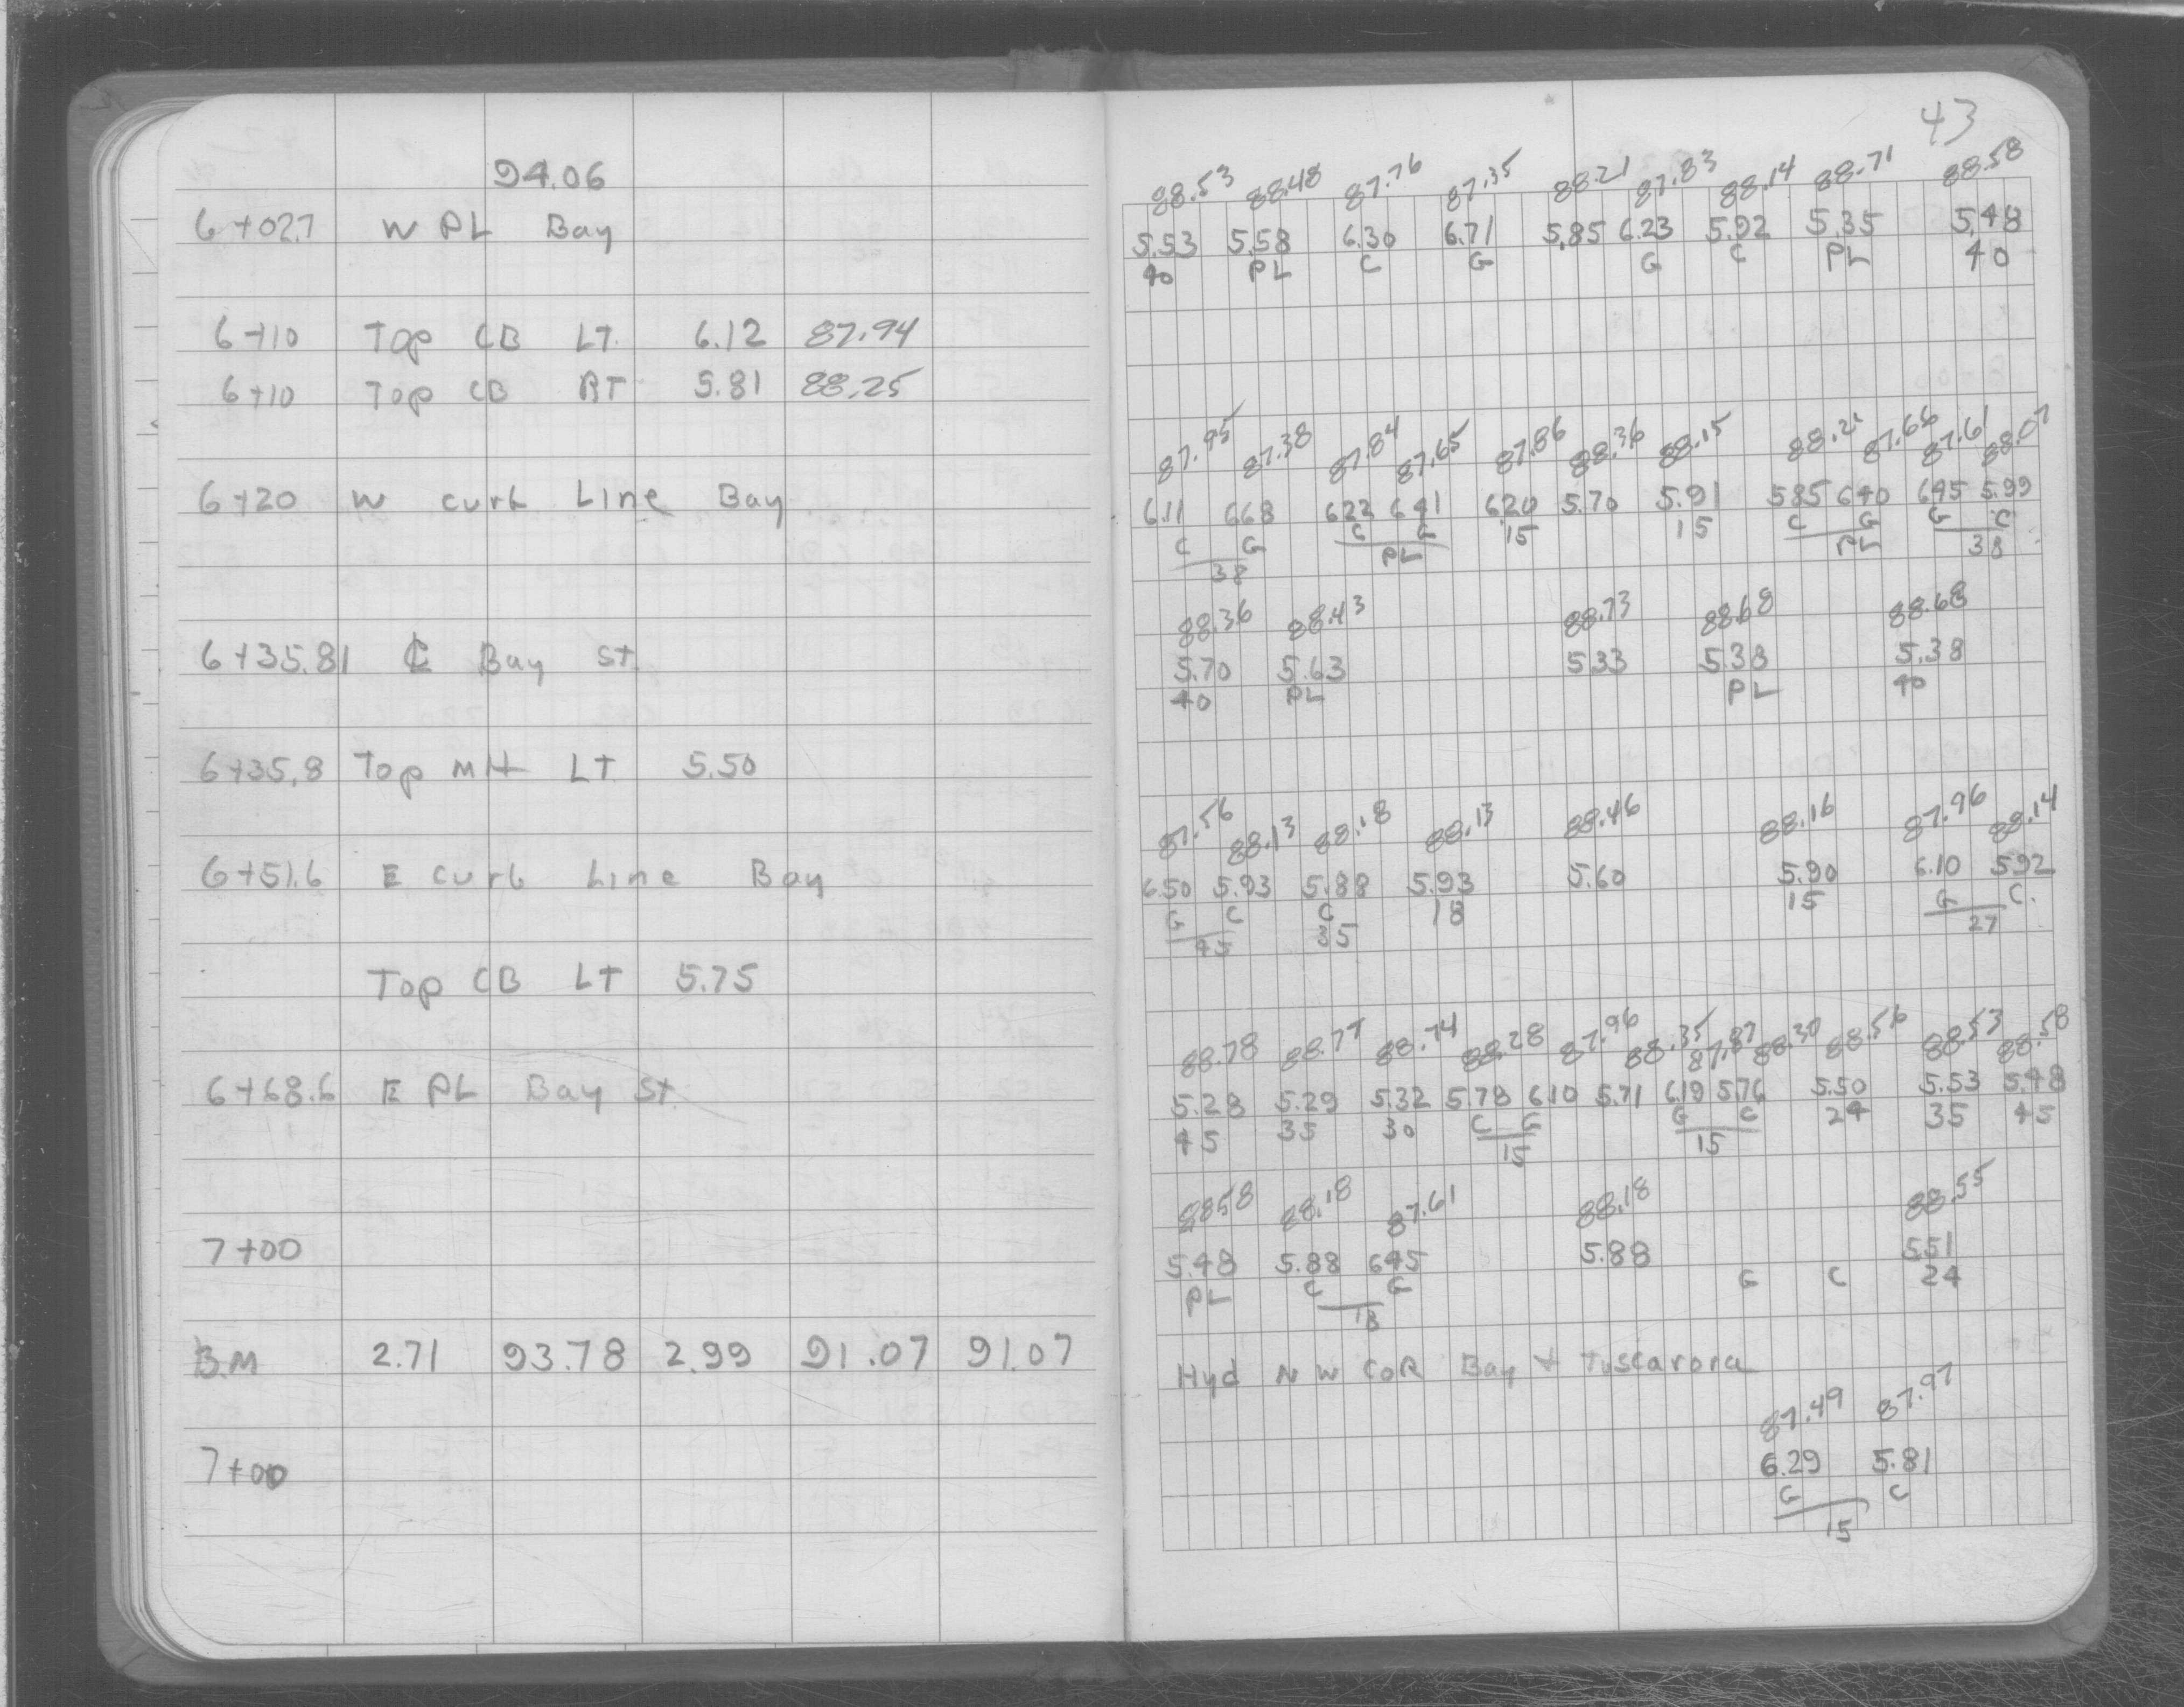 94.06
6+02.7 W PL Bay
6+10 Top CB LT. 6.12 87.94
6+10 Top CB RT 5.81 88.25
6+20 W curb Line Bay
6+35.81 ℄ Bay St.
6+35.8 Top MH LT 5.50
6+51.6 E curb Line Bay
Top CB LT 5.75
6+68.6 E PL Bay St.
7+00
B.M 2.71 93.78 2.99 91.07 91.07
7+00
43
88.53 88.48 87.76 87.35 88.21 87.83 88.14 88.71 88.58
5.53 5.58 6.30 6.71 5.85 6.23 5.92 5.35 5.48
40 PL C G G C PL 40
87.95 87.38 87.84 87.65 87.86 88.36 88.15 88.21 87.66 87.61 88.07
6.11 6.68 6.22 6.41 6.20 5.70 5.91 5.85 6.40 6.45 5.99
C G C G 15 15 C G G C
38 PL PL 38
88.36 88.43 88.73 88.68 88.68
5.70 5.63 5.33 5.38 5.38
40 PL PL 40
87.56 88.13 88.18 88.13 88.46 88.16 87.96 88.14
6.50 5.93 5.88 5.93 5.60 5.90 6.10 5.92
G C C 18 15 G C.
45 35 27
88.78 88.77 88.74 88.28 87.96 88.35 87.87 88.30 88.56 88.53 88.58
5.28 5.29 5.32 5.78 6.10 5.71 6.19 5.76 5.50 5.53 5.48
45 35 30 C G G C 24 35 45
15 15
88.58 88.18 87.61 88.18 88.55
5.48 5.88 6.45 5.88 5.51
PL C G G C 24
18
Hyd N W COR Bay + Tuscarora
87.49 87.97
6.29 5.81
G C
15